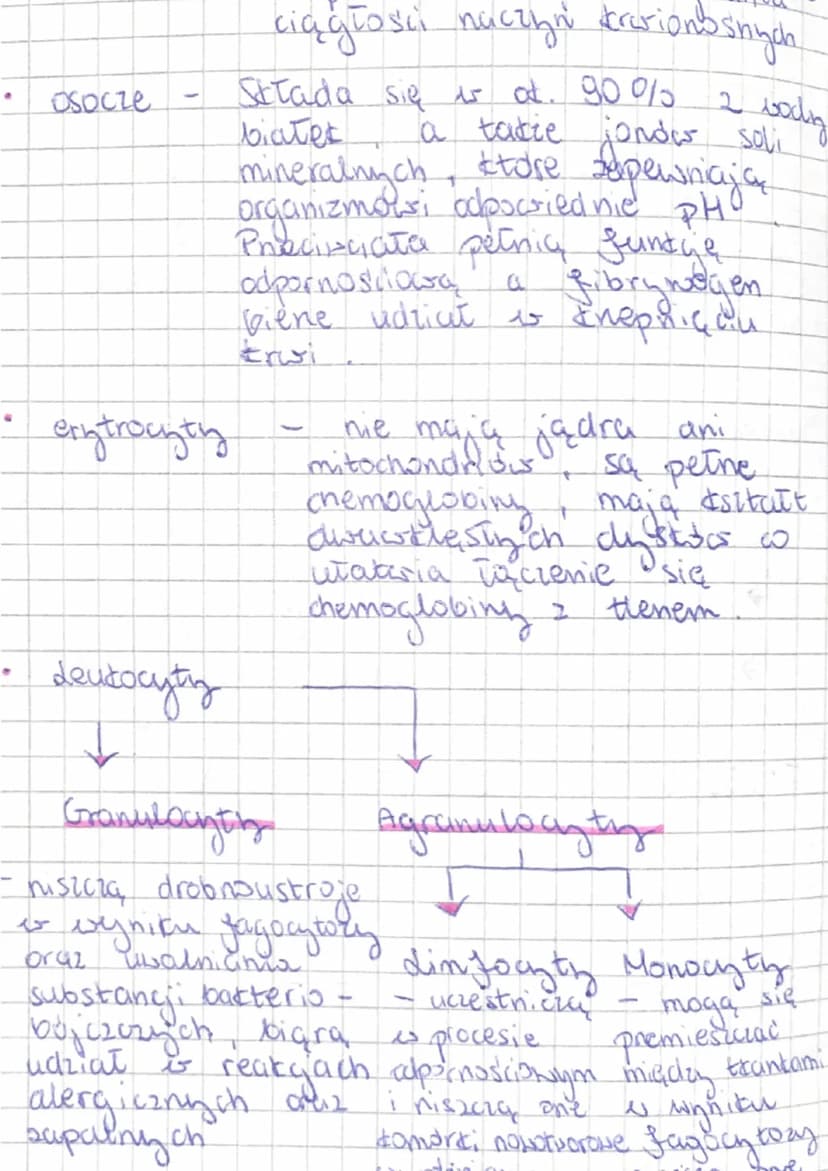 ciągłości naczyń krwionośnych
• osocze - Składa się w ok. 90% z wody
białek, a także jonów soli
mineralnych, które zapewniają
organizmowi odpowiednie pH.
Przeciwciała pełnią funkcję
odpornościową a fibrynogen
bierze udział w krzepnięciu
krwi.
• erytrocyty - nie mają jądra ani
mitochondriów, są pełne
chemoglobiny, mają kształt
dwuwklęsłych dysków co
ułatwia łączenie się
chemoglobiny z tlenem.
• Leukocyty
Granulocyty Agranulocyty
- niszczą drobnoustroje
w wyniku fagocytozy
oraz uwalniania
substancji bakterio-
bójczych, biorą
udział w reakcjach
alergicznych oraz
zapalnych
Limfocyty
- uczestniczą
w procesie
odpornościowym
i niszczą one
komórki nowotworowe
Monocyty
- mogą się
przemieszczać
między tkankami
w wyniku
fagocytozy